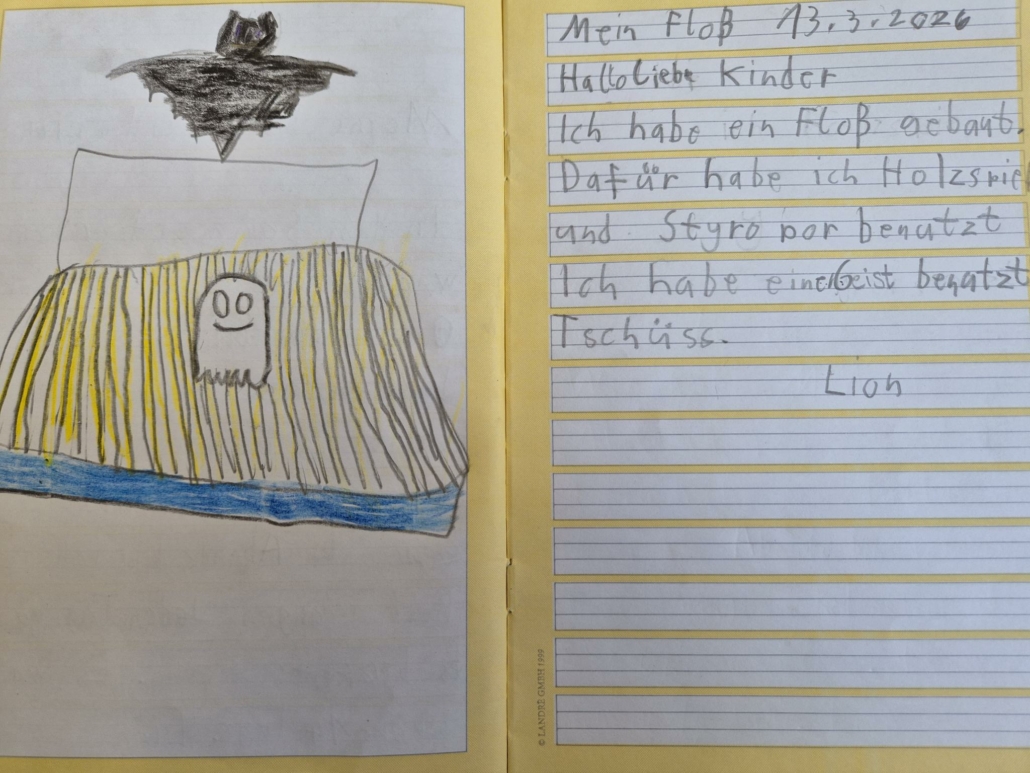 Mein Floß 13.3.2026
Hallo liebe Kinder
Ich habe ein Floß gebaut.
Dafür habe ich Holzspie
und Styropor benutzt
Ich habe einen Geist benutzt
Tschüss.
Lion
© LANDRÉ GMBH 1999